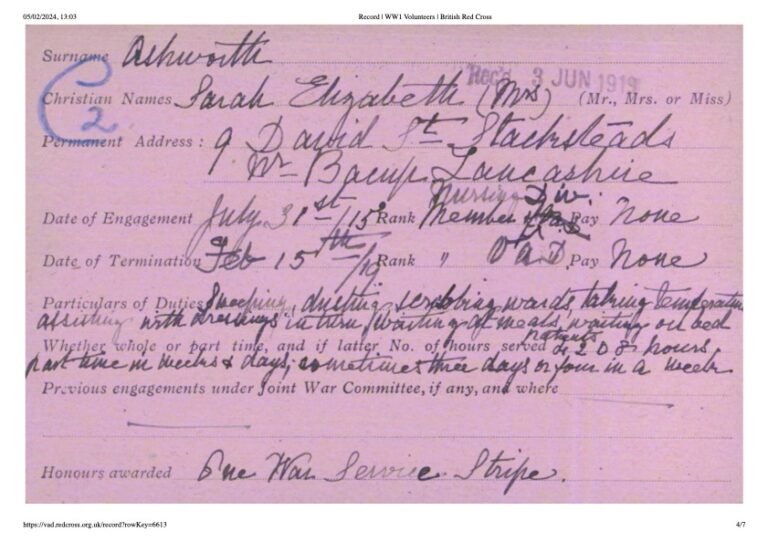 05/02/2024, 13:03 Record | WW1 Volunteers | British Red Cross
Surname Ashworth
Rec'd 3 JUN 1919
C2
Christian Names Sarah Elizabeth (Mrs) (Mr., Mrs. or Miss)
Permanent Address : 9 David St Stacksteads
Nr Bacup Lancashire
Nursing Div.
Date of Engagement July 31st/15 Rank Member Pay None
Date of Termination Feb 15th/19 Rank " V.A.D. Pay None
Particulars of Duties Sweeping, dusting, scrubbing wards, taking temperature
assisting with dressings in turn, waiting at meals, waiting on bed
patients
Whether whole or part time, and if latter No. of hours served hours
part time in weeks & days, sometimes three days or four in a week
Previous engagements under Joint War Committee, if any, and where
Honours awarded One War Service Stripe.
https://vad.redcross.org.uk/record?rowKey=6613 4/7